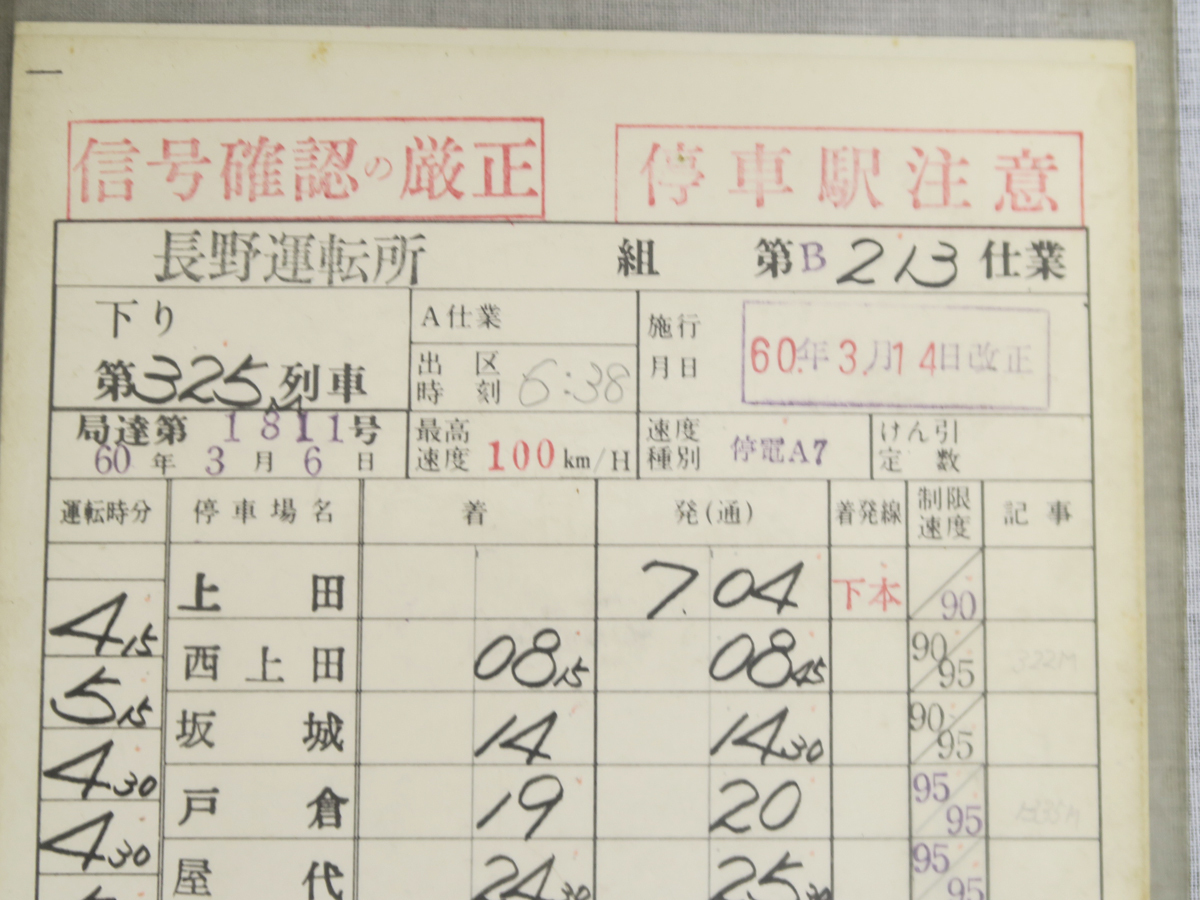 信号確認の厳正 停車駅注意
長野運転所 組 第B213仕業
下り
第325M列車
A仕業
出区時刻 6:38
施行月日 60年3月14日改正
局達第1811号
60年3月6日
最高速度 100km/H
速度種別 停電A7
けん引定数
運転時分 停車場名 着 発(通) 着発線 制限速度 記事
上田 7 04 下本 90
4 15
西上田 08 15 08 45 90 95 322M
5 15
坂城 14 14 30 90 95
4 30
戸倉 19 20 95 95
4 30
屋代 24 30 25 30 95 95